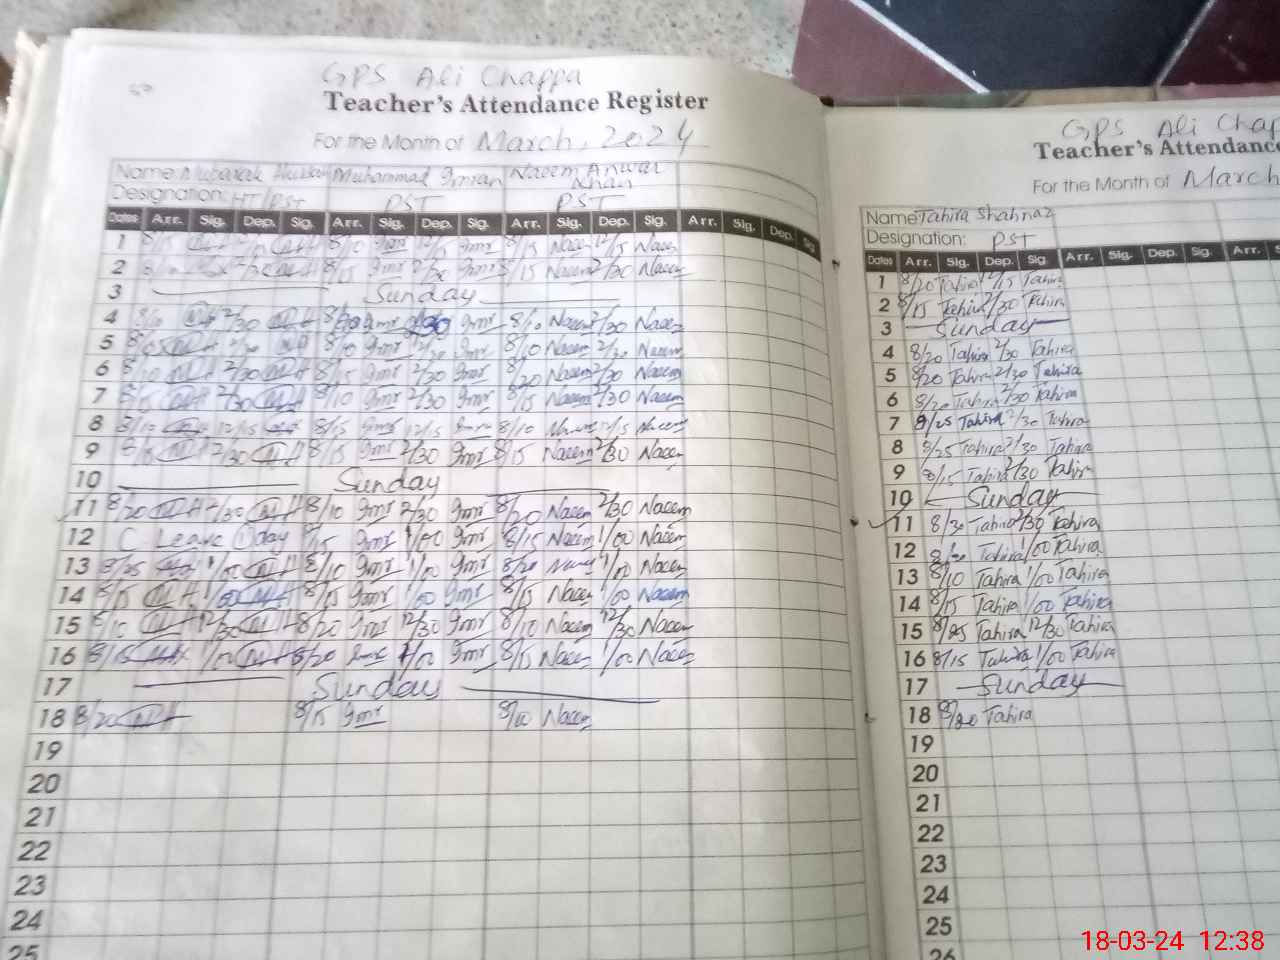 GPS Ali Chappa
Teacher's Attendance Register
For the Month of March, 2024
Name: Mubarak Hussain Muhammad Imran Naeem Anwar Khan
Designation: HT/PST PST PST
Dates Arr. Sig. Dep. Sig. Arr. Sig. Dep. Sig. Arr. Sig. Dep. Sig. Arr. Sig. Dep. Sig
1 8/15 8/10 Imr 12/15 Imr 8/15 Naeem 12/15 Naeem
2 8/15 Imr 2/30 Imr 8/15 Naeem 2/30 Naeem
3 Sunday
4 8/10 2/30 Imr Imr 8/10 Naeem 2/30 Naeem
5 8/10 Imr 2/30 Imr 8/10 Naeem 2/30 Naeem
6 8/10 2/30 8/10 Imr 2/30 Imr 8/20 Naeem 2/30 Naeem
7 8/15 2/30 8/10 Imr 2/30 Imr 8/15 Naeem 2/30 Naeem
8 8/10 12/15 8/15 Imr 12/15 Imr 8/10 Naeem 12/15 Naeem
9 8/15 2/30 8/15 Imr 2/30 Imr 8/15 Naeem 2/30 Naeem
10 Sunday
11 8/20 2/30 8/10 Imr 2/30 Imr 8/20 Naeem 2/30 Naeem
12 C Leave 1 day 8/15 Imr 1/00 Imr 8/15 Naeem 1/00 Naeem
13 8/25 1/00 8/10 Imr 1/00 Imr 8/20 Naeem 1/00 Naeem
14 8/15 1/00 8/15 Imr 1/00 Imr 8/15 Naeem 1/00 Naeem
15 8/10 12/30 8/20 Imr 12/30 Imr 8/10 Naeem 12/30 Naeem
16 8/15 1/00 8/20 Imr 1/00 Imr 8/15 Naeem 1/00 Naeem
17 Sunday
18 8/20 8/15 Imr 8/10 Naeem
19
20
21
22
23
24
25
GPS Ali Chap
Teacher's Attendance
For the Month of March
Name Tahira Shahnaz
Designation: PST
Dates Arr. Sig. Dep. Sig. Arr. Sig. Dep. Sig. Arr. S
1 8/20 Tahira 12/15 Tahira
2 8/15 Tahira 2/30 Tahira
3 Sunday
4 8/20 Tahira 2/30 Tahira
5 8/20 Tahira 2/30 Tahira
6 8/20 Tahira 2/30 Tahira
7 8/25 Tahira 2/30 Tahira
8 8/25 Tahira 2/30 Tahira
9 8/15 Tahira 2/30 Tahira
10 Sunday
11 8/30 Tahira 2/30 Tahira
12 Tahira 1/00 Tahira
13 8/10 Tahira 1/00 Tahira
14 8/15 Tahira 1/00 Tahira
15 8/25 Tahira 12/30 Tahira
16 8/15 Tahira 1/00 Tahira
17 Sunday
18 8/20 Tahira
19
20
21
22
23
24
25
26
18-03-24 12:38